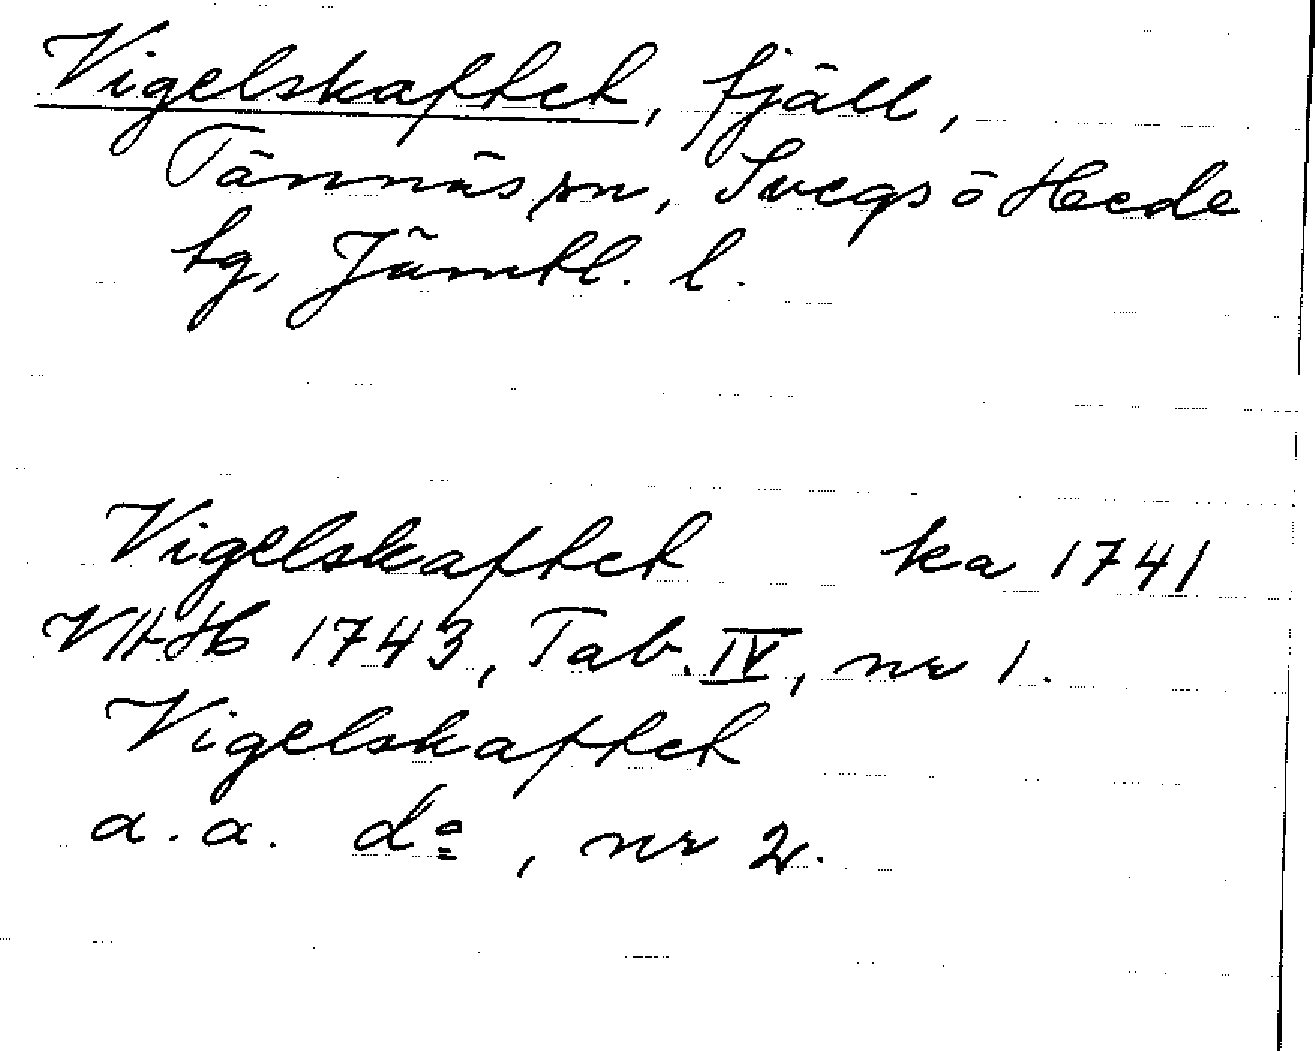 Vigelskaftet, fjäll,
Tännäs sn, Svegs o Hede
tg, Jämtl. l.
Vigelskaftet ka 1741
VHAH 1743, Tab. IV, nr 1.
Vigelskaftet
a. a. do, nr 2.